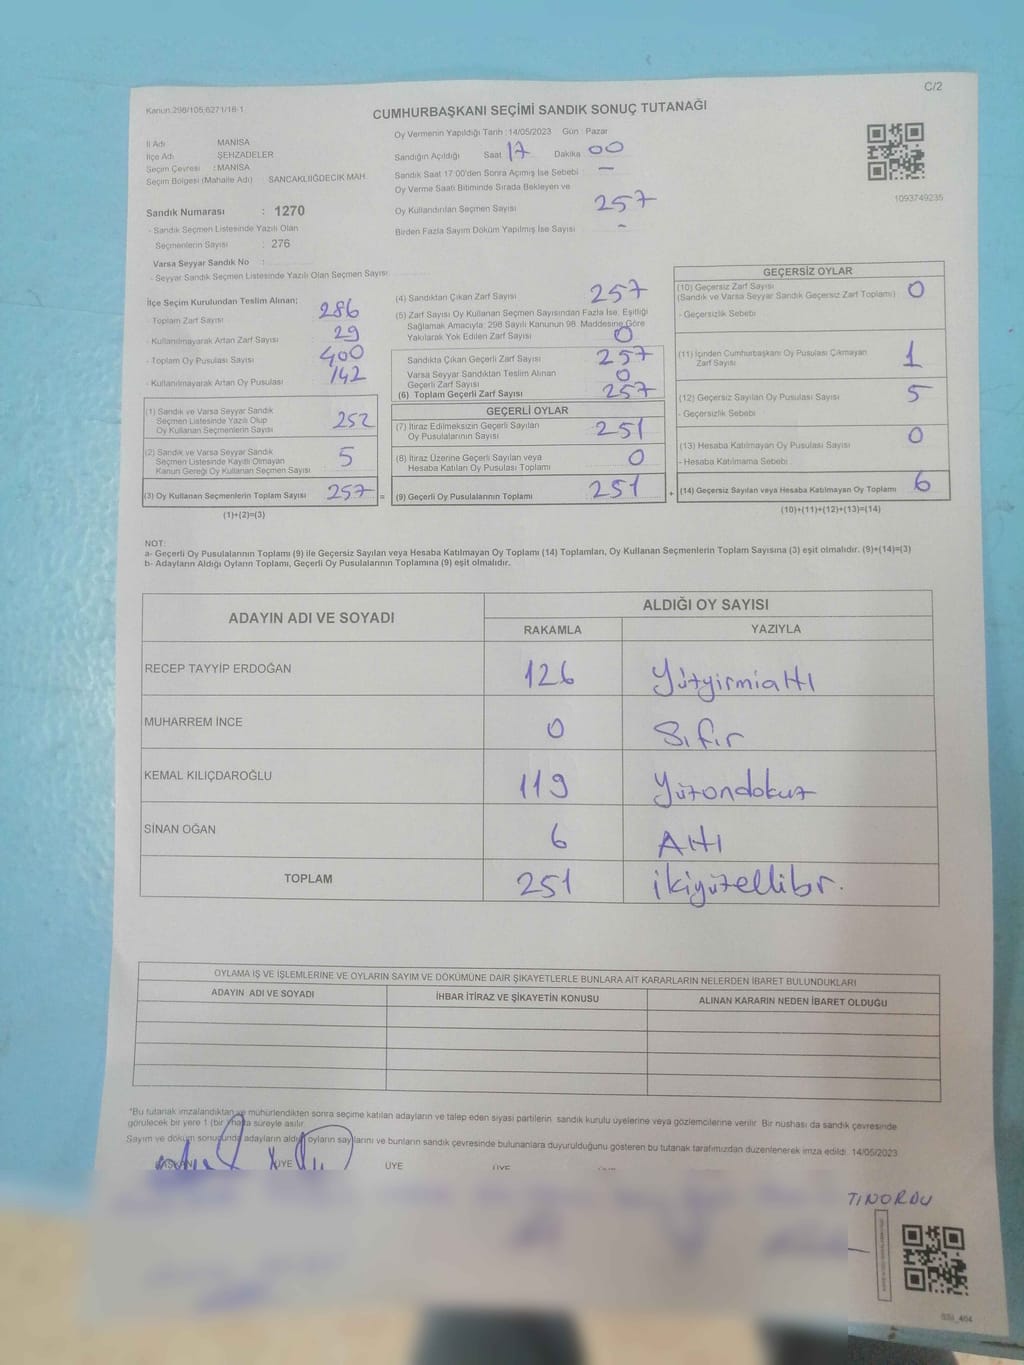 C/2
Kanun:298/105,6271/18-1
CUMHURBAŞKANI SEÇİMİ SANDIK SONUÇ TUTANAĞI
İl Adı MANİSA
İlçe Adı ŞEHZADELER
Seçim Çevresi : MANİSA
Seçim Bölgesi (Mahalle Adı) SANCAKLIİĞDECİK MAH.
Oy Vermenin Yapıldığı Tarih :14/05/2023 Gün : Pazar
Sandığın Açıldığı Saat 17 Dakika 00
Sandık Saat 17:00'den Sonra Açılmış İse Sebebi -
Oy Verme Saati Bitiminde Sırada Bekleyen ve
Oy Kullandırılan Seçmen Sayısı 257
Birden Fazla Sayım Döküm Yapılmış İse Sayısı -
1093749235
Sandık Numarası : 1270
- Sandık Seçmen Listesinde Yazılı Olan
Seçmenlerin Sayısı : 276
Varsa Seyyar Sandık No :
- Seyyar Sandık Seçmen Listesinde Yazılı Olan Seçmen Sayısı:
İlçe Seçim Kurulundan Teslim Alınan;
- Toplam Zarf Sayısı 286
- Kullanılmayarak Artan Zarf Sayısı 29
- Toplam Oy Pusulası Sayısı 400
- Kullanılmayarak Artan Oy Pusulası 142
(1) Sandık ve Varsa Seyyar Sandık
Seçmen Listesinde Yazılı Olup
Oy Kullanan Seçmenlerin Sayısı 252
(2) Sandık ve Varsa Seyyar Sandık
Seçmen Listesinde Kayıtlı Olmayan
Kanun Gereği Oy Kullanan Seçmen Sayısı 5
(3) Oy Kullanan Seçmenlerin Toplam Sayısı 257 =
(1)+(2)=(3)
(4) Sandıktan Çıkan Zarf Sayısı 257
(5) Zarf Sayısı Oy Kullanan Seçmen Sayısından Fazla İse, Eşitliği
Sağlamak Amacıyla; 298 Sayılı Kanunun 98. Maddesine Göre
Yakılarak Yok Edilen Zarf Sayısı 0
Sandıkta Çıkan Geçerli Zarf Sayısı 257
Varsa Seyyar Sandıktan Teslim Alınan
Geçerli Zarf Sayısı 0
(6) Toplam Geçerli Zarf Sayısı 257
GEÇERLİ OYLAR
(7) İtiraz Edilmeksizin Geçerli Sayılan
Oy Pusulalarının Sayısı 251
(8) İtiraz Üzerine Geçerli Sayılan veya
Hesaba Katılan Oy Pusulası Toplamı 0
(9) Geçerli Oy Pusulalarının Toplamı 251 +
GEÇERSİZ OYLAR
(10) Geçersiz Zarf Sayısı
(Sandık ve Varsa Seyyar Sandık Geçersiz Zarf Toplamı) 0
- Geçersizlik Sebebi
(11) İçinden Cumhurbaşkanı Oy Pusulası Çıkmayan
Zarf Sayısı 1
(12) Geçersiz Sayılan Oy Pusulası Sayısı 5
- Geçersizlik Sebebi
(13) Hesaba Katılmayan Oy Pusulası Sayısı 0
- Hesaba Katılmama Sebebi
(14) Geçersiz Sayılan veya Hesaba Katılmayan Oy Toplamı 6
(10)+(11)+(12)+(13)=(14)
NOT:
a- Geçerli Oy Pusulalarının Toplamı (9) ile Geçersiz Sayılan veya Hesaba Katılmayan Oy Toplamı (14) Toplamları, Oy Kullanan Seçmenlerin Toplam Sayısına (3) eşit olmalıdır. (9)+(14)=(3)
b- Adayların Aldığı Oyların Toplamı, Geçerli Oy Pusulalarının Toplamına (9) eşit olmalıdır.
ADAYIN ADI VE SOYADI ALDIĞI OY SAYISI
RAKAMLA YAZIYLA
RECEP TAYYİP ERDOĞAN 126 Yüzyirmialtı
MUHARREM İNCE 0 Sıfır
KEMAL KILIÇDAROĞLU 119 Yüzondokuz
SİNAN OĞAN 6 Altı
TOPLAM 251 İkiyüzellibr.
OYLAMA İŞ VE İŞLEMLERİNE VE OYLARIN SAYIM VE DÖKÜMÜNE DAİR ŞİKAYETLERLE BUNLARA AİT KARARLARIN NELERDEN İBARET BULUNDUKLARI
ADAYIN ADI VE SOYADI İHBAR İTİRAZ VE ŞİKAYETİN KONUSU ALINAN KARARIN NEDEN İBARET OLDUĞU
*Bu tutanak imzalandıktan ve mühürlendikten sonra seçime katılan adayların ve talep eden siyasi partilerin sandık kurulu üyelerine veya gözlemcilerine verilir. Bir nüshası da sandık çevresinde
görülecek bir yere 1 (bir) hafta süreyle asılır.
Sayım ve döküm sonucunda adayların aldığı oyların sayılarını ve bunların sandık çevresinde bulunanlara duyurulduğunu gösteren bu tutanak tarafımızdan düzenlenerek imza edildi. 14/05/2023
BAŞKAN ÜYE ÜYE
TINORDU